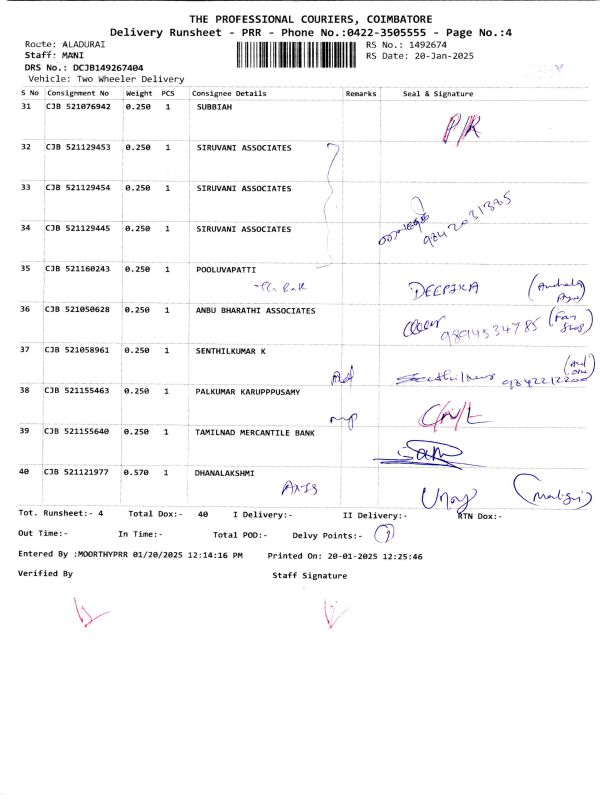 THE PROFESSIONAL COURIERS, COIMBATORE
Delivery Runsheet - PRR - Phone No.:0422-3505555 - Page No.:4
Route: ALADURAI RS No.: 1492674
Staff: MANI RS Date: 20-Jan-2025
DRS No.: DCJB149267404
Vehicle: Two Wheeler Delivery
S No Consignment No Weight PCS Consignee Details Remarks Seal & Signature
31 CJB 521076942 0.250 1 SUBBIAH
P/R
32 CJB 521129453 0.250 1 SIRUVANI ASSOCIATES
33 CJB 521129454 0.250 1 SIRUVANI ASSOCIATES
34 CJB 521129445 0.250 1 SIRUVANI ASSOCIATES
35 CJB 521160243 0.250 1 POOLUVAPATTI
DEEPIKA
36 CJB 521050628 0.250 1 ANBU BHARATHI ASSOCIATES
9894534785
37 CJB 521058961 0.250 1 SENTHILKUMAR K
38 CJB 521155463 0.250 1 PALKUMAR KARUPPPUSAMY
39 CJB 521155640 0.250 1 TAMILNAD MERCANTILE BANK
40 CJB 521121977 0.570 1 DHANALAKSHMI
AXIS
Tot. Runsheet:- 4 Total Dox:- 40 I Delivery:- II Delivery:- RTN Dox:-
Out Time:- In Time:- Total POD:- Delvy Points:-
Entered By :MOORTHYPRR 01/20/2025 12:14:16 PM Printed On: 20-01-2025 12:25:46
Verified By Staff Signature